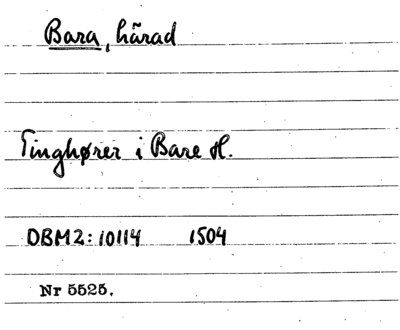 Bara, härad
Tinghører i Bare H.
DBM2: 10114 1504
Nr 5525.